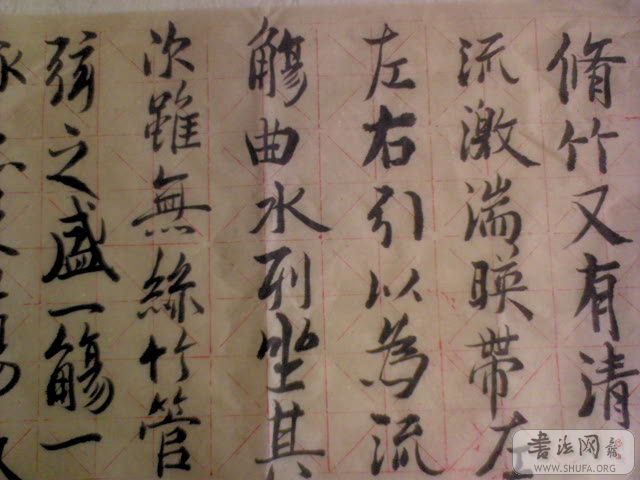 脩竹又有清
流激湍暎帶左
左右引以為流
觴曲水列坐其
次雖無絲竹管
弦之盛一觴一
書法网
WWW.SHUFA.ORG